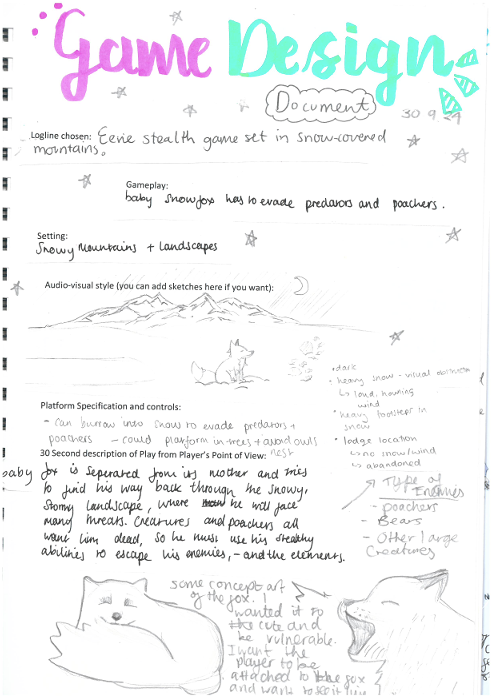 Game Design
Document
30.9.24
Logline chosen: Eerie stealth game set in snow-covered
mountains.
Gameplay:
baby snowfox has to evade predators and poachers.
Setting:
Snowy Mountains + landscapes
Audio-visual style (you can add sketches here if you want):
• dark
• heavy snow - visual obstruction
↳ loud, howling
wind
• heavy footsteps in
snow
• lodge location
↳ no snow/wind
↳ abandoned
Platform Specification and controls:
- can burrow into snow to evade predators +
poachers - could platform in trees + avoid owls
nest
30 Second description of Play from Player's Point of View:
baby fox is seperated from its mother and tries
to find his way back through the snowy,
stormy landscape, where he will face
many threats. Creatures and poachers all
want him dead, so he must use his stealthy
abilities to escape his enemies, - and the elements.
Type of
Enemies
- poachers
- Bears
- Other large
Creatures
some concept art
of the fox. I
wanted it to
be cute and
be vulnerable.
I want the
player to be
attached to the fox
and want to see it live